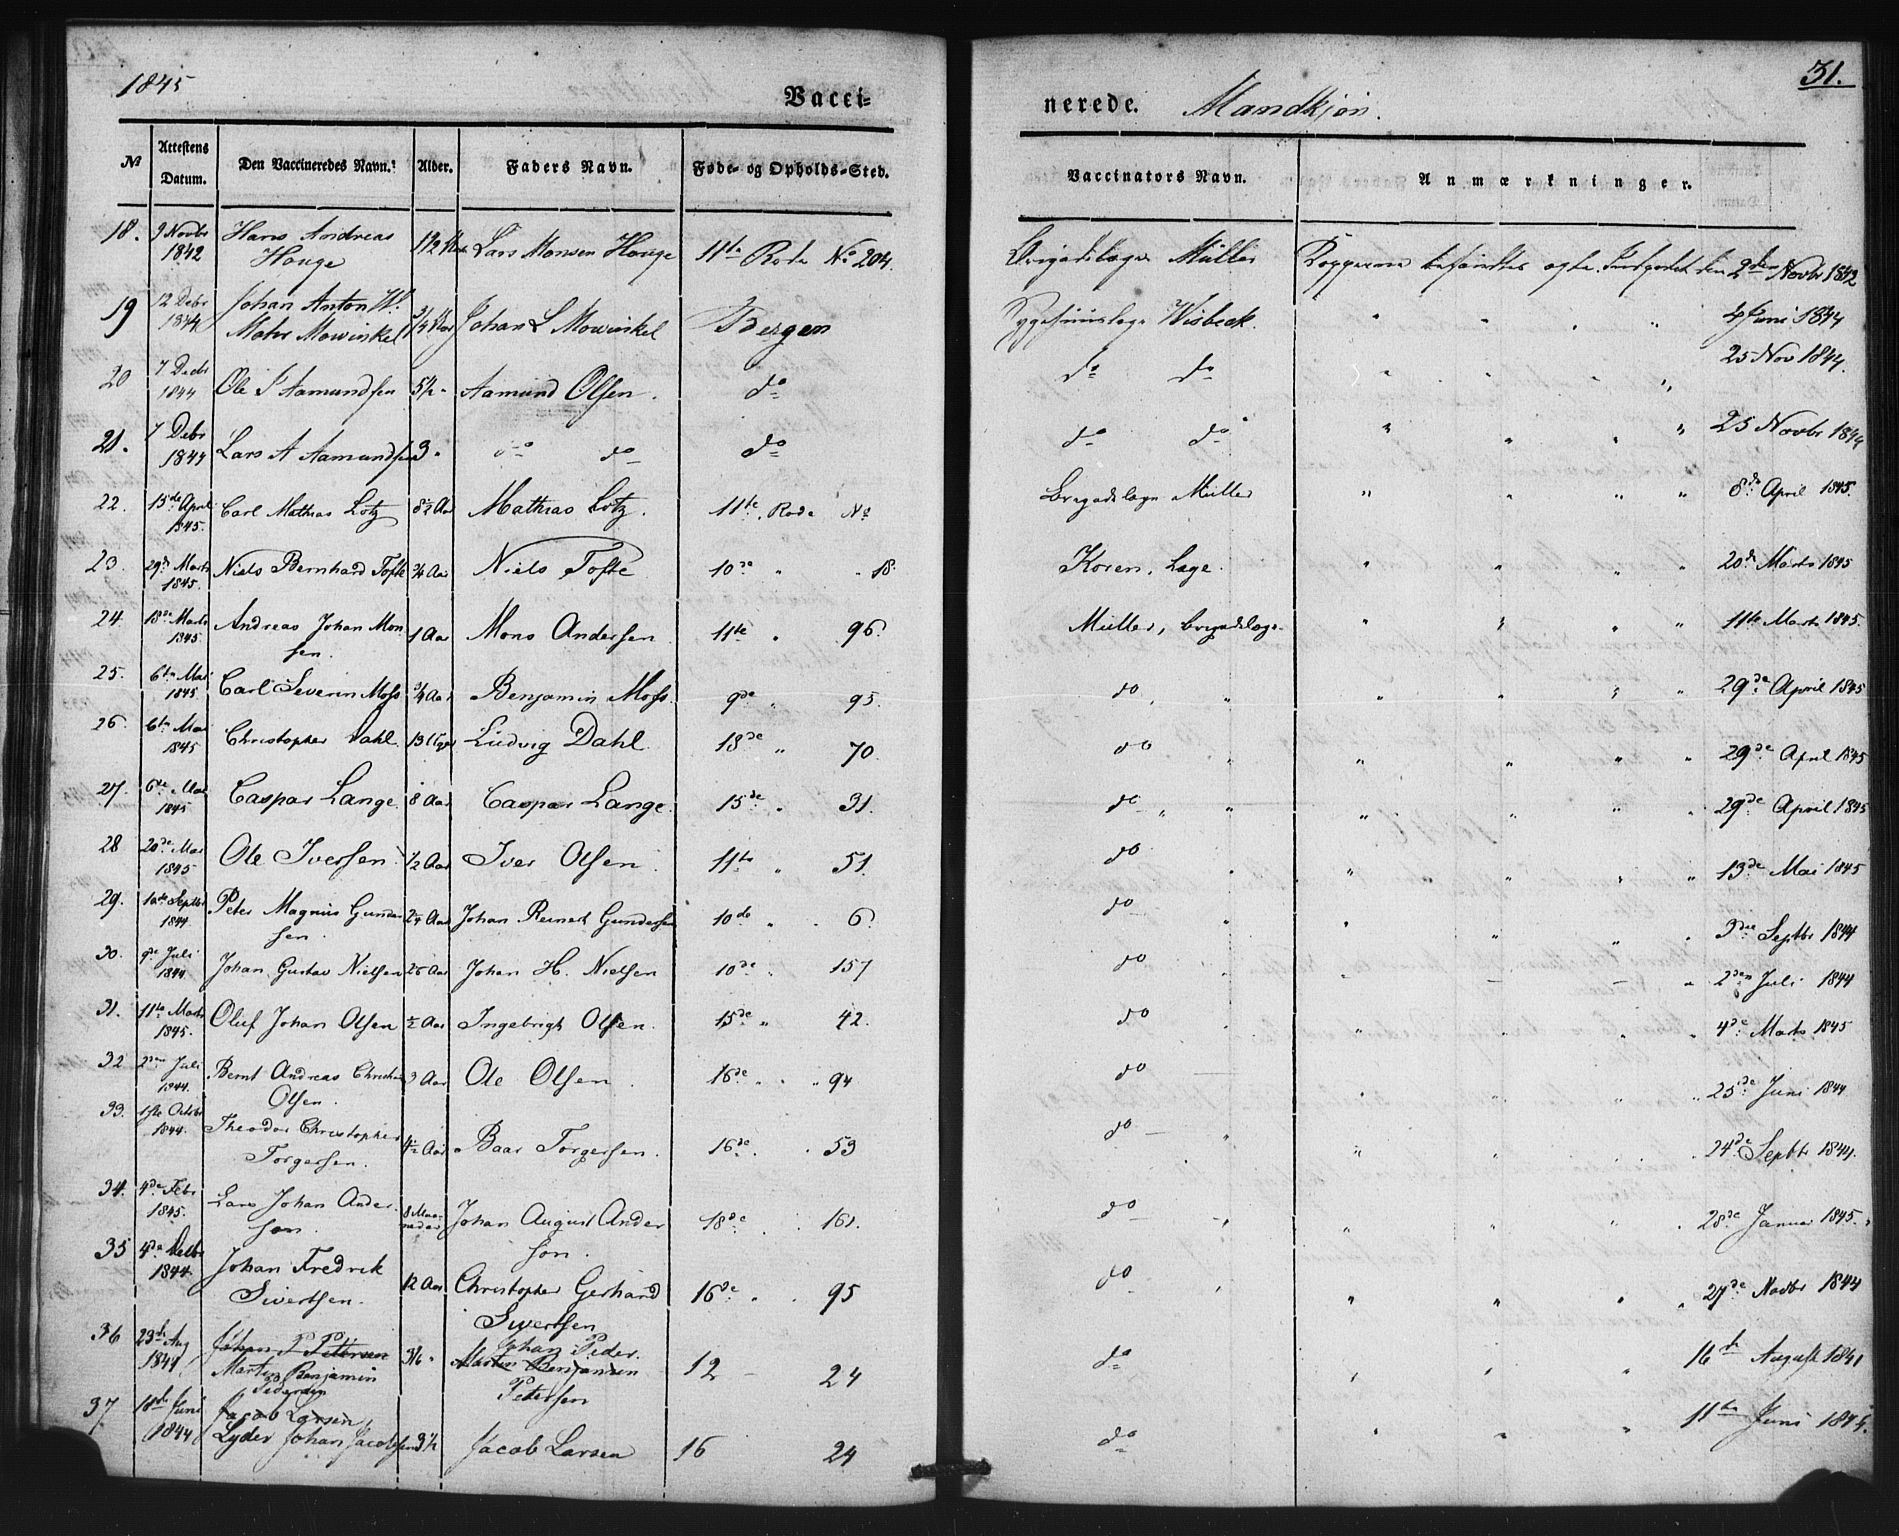 1845
Vacci-
nerede. Mandkjøn.
31.
№ Attestens Datum. Den Vaccineredes Navn. Alder. Faders Navn. Føde- og Opholds-Sted. Vaccinators Navn. Anmærkninger.
18. 9 Novbr 1842 Hans Andreas Houge 1 1/2 Lars Monsen Houge 11te Rode No 204. Brigadelæge Müller Kopperne befandtes ægte. Novbr 1842
19 12 Debr 1844 Johan Anton W. Mohr Mowinkel Johan L Mowinkel Bergen Wisbeck. " " " 4 Juni 1844
20 7 Decbr 1844 Ole J Aamundsen 5 1/2 " Aamund Olsen. do do do " " " " 25 Nov 1844.
21. 7 Debr 1844 Lars A Aamundsen 3 " do do do do do " " " " 25 Novbr 1844
22. 15de April 1845. Carl Mathias Lotz 8 1/2 Aar Mathias Lotz. 11te Rode No Brigadelæge Müller " " " " 8de April 1845.
23. 29de Marts 1845. Niels Bernhard Tofte 3/4 Aar Niels Tofte 10de " " 18. Koren, Læge. " " " " 20de Marts 1845
24. 18de Marts 1845. Andreas Johan Monsen. 1 Aar Mons Andersen. 11te " 96. Müller, Brigadelæge. " " " " 11te Marts 1845.
25. 6te Mai 1845 Carl Severin Moss 3/4 Aar Benjamin Moss. 9de " 95. do " " " " " 29de April 1845
26. 6te Mai 1845 Christopher Dahl. 13 Uger Ludvig Dahl. 18de " 70. do " " " " " 29de April 1845
27. 6te Mai 1845 Caspar Lange 8 Aar Caspar Lange. 15de " 31. do " " " " " " 29de April 1845
28 20de Mai 1845 Ole Iversen 1/2 Aar Iver Olsen. 11te " 51. do " " " " " 13de Mai 1845
29. 10de Septbr 1844. Peter Magnus Gundersen. Aar Johan Reinert Gundersen 10de " " 6. do " " " " 3die Septbr 1844
30. 9de Juli 1844. Johan Gustav Nielsen Aar Johan H. Nielsen 10de " 157 do " " " 2den Juli 1844
31. 11te Marts 1845. Oluf Johan Olsen 1/2 Aar Ingebrigt Olsen. 15de " 42. do " " " " " 4de Marts 1845
32 2den Juli 1844. Bernt Andreas Christian Olsen. 3 Aar Ole Olsen. 16de " " 94 do " " " " 25de Juni 1844
33. 1ste Octobr 1844. Theodor Christopher Torgersen. 4 1/2 Aar Baar Torgersen. 16de " " 53 do " " " " " 24de Septbr 1844.
34. 4de Febr 1845. Lars Johan Anderson. 8 Maaneder Johan August Anderson. 18de " 161. do " " " " " 28de Januar 1845.
35 4de Decbr 1844. Johan Fredrik Sivertsen. 12 Aar Christopher Gerhard Sivertsen 16de " " 95 do " " " " " 27de Novbr 1844
36 23de Aug 1841 Johan P Petersen Martin Benjamin Pedersen " Johan Peder. Martin Benjamin Petersen 12 24 do " " " 16de August 1841
37 18de Juni 1844 Jacob Larsen, Lyder Johan Jacobsen 3 1/2 Jacob Larsen 16 24 do " " " 11te Juni 1844.